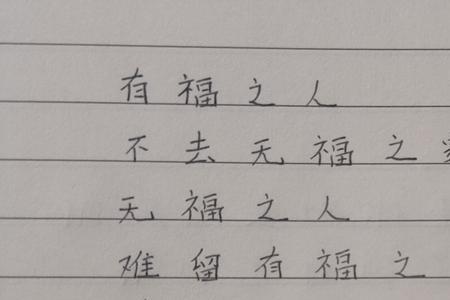 有福之人
不去无福之家
无福之人
难留有福之